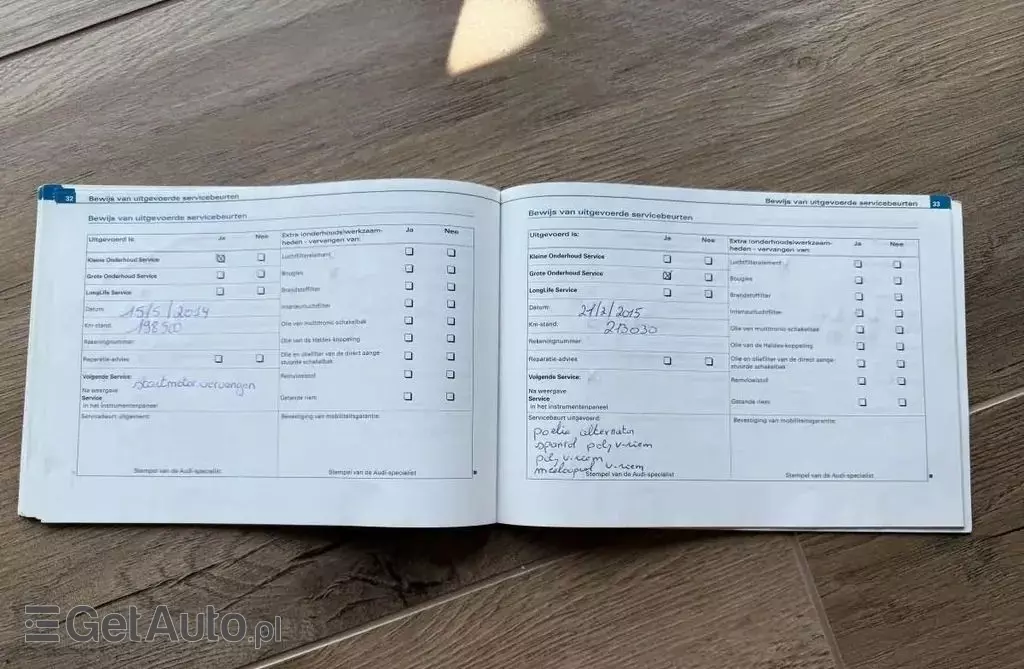 32 Bewijs van uitgevoerde servicebeurten
Bewijs van uitgevoerde servicebeurten
Uitgevoerd is: Ja Nee
Kleine Onderhoud Service
Grote Onderhoud Service
LongLife Service
Datum: 15/5/2014
Km-stand: 198500
Rekeningnummer:
Reparatie-advies
Volgende Service: startmotor vervangen
Na weergave
Service
in het instrumentenpaneel
Servicebeurt uitgevoerd:
Stempel van de Audi-specialist
Extra (onderhouds)werkzaam-
heden - vervangen van: Ja Nee
Luchtfilterelement
Bougies
Brandstoffilter
Interieurluchtfilter
Olie van multitronic schakelbak
Olie van de Haldex-koppeling
Olie en oliefilter van de direct aange-
stuurde schakelbak
Remvloeistof
Getande riem
Bevestiging van mobiliteitsgarantie:
Stempel van de Audi-specialist
Bewijs van uitgevoerde servicebeurten 33
Bewijs van uitgevoerde servicebeurten
Uitgevoerd is: Ja Nee
Kleine Onderhoud Service
Grote Onderhoud Service
LongLife Service
Datum: 21/2/2015
Km-stand: 213030
Rekeningnummer:
Reparatie-advies
Volgende Service:
Na weergave
Service
in het instrumentenpaneel
Servicebeurt uitgevoerd:
poelie alternator
spanrol poly v-riem
poly v-riem
v-riem
Stempel van de Audi-specialist
Extra (onderhouds)werkzaam-
heden - vervangen van: Ja Nee
Luchtfilterelement
Bougies
Brandstoffilter
Interieurluchtfilter
Olie van multitronic schakelbak
Olie van de Haldex-koppeling
Olie en oliefilter van de direct aange-
stuurde schakelbak
Remvloeistof
Getande riem
Bevestiging van mobiliteitsgarantie:
Stempel van de Audi-specialist
GetAuto.pl